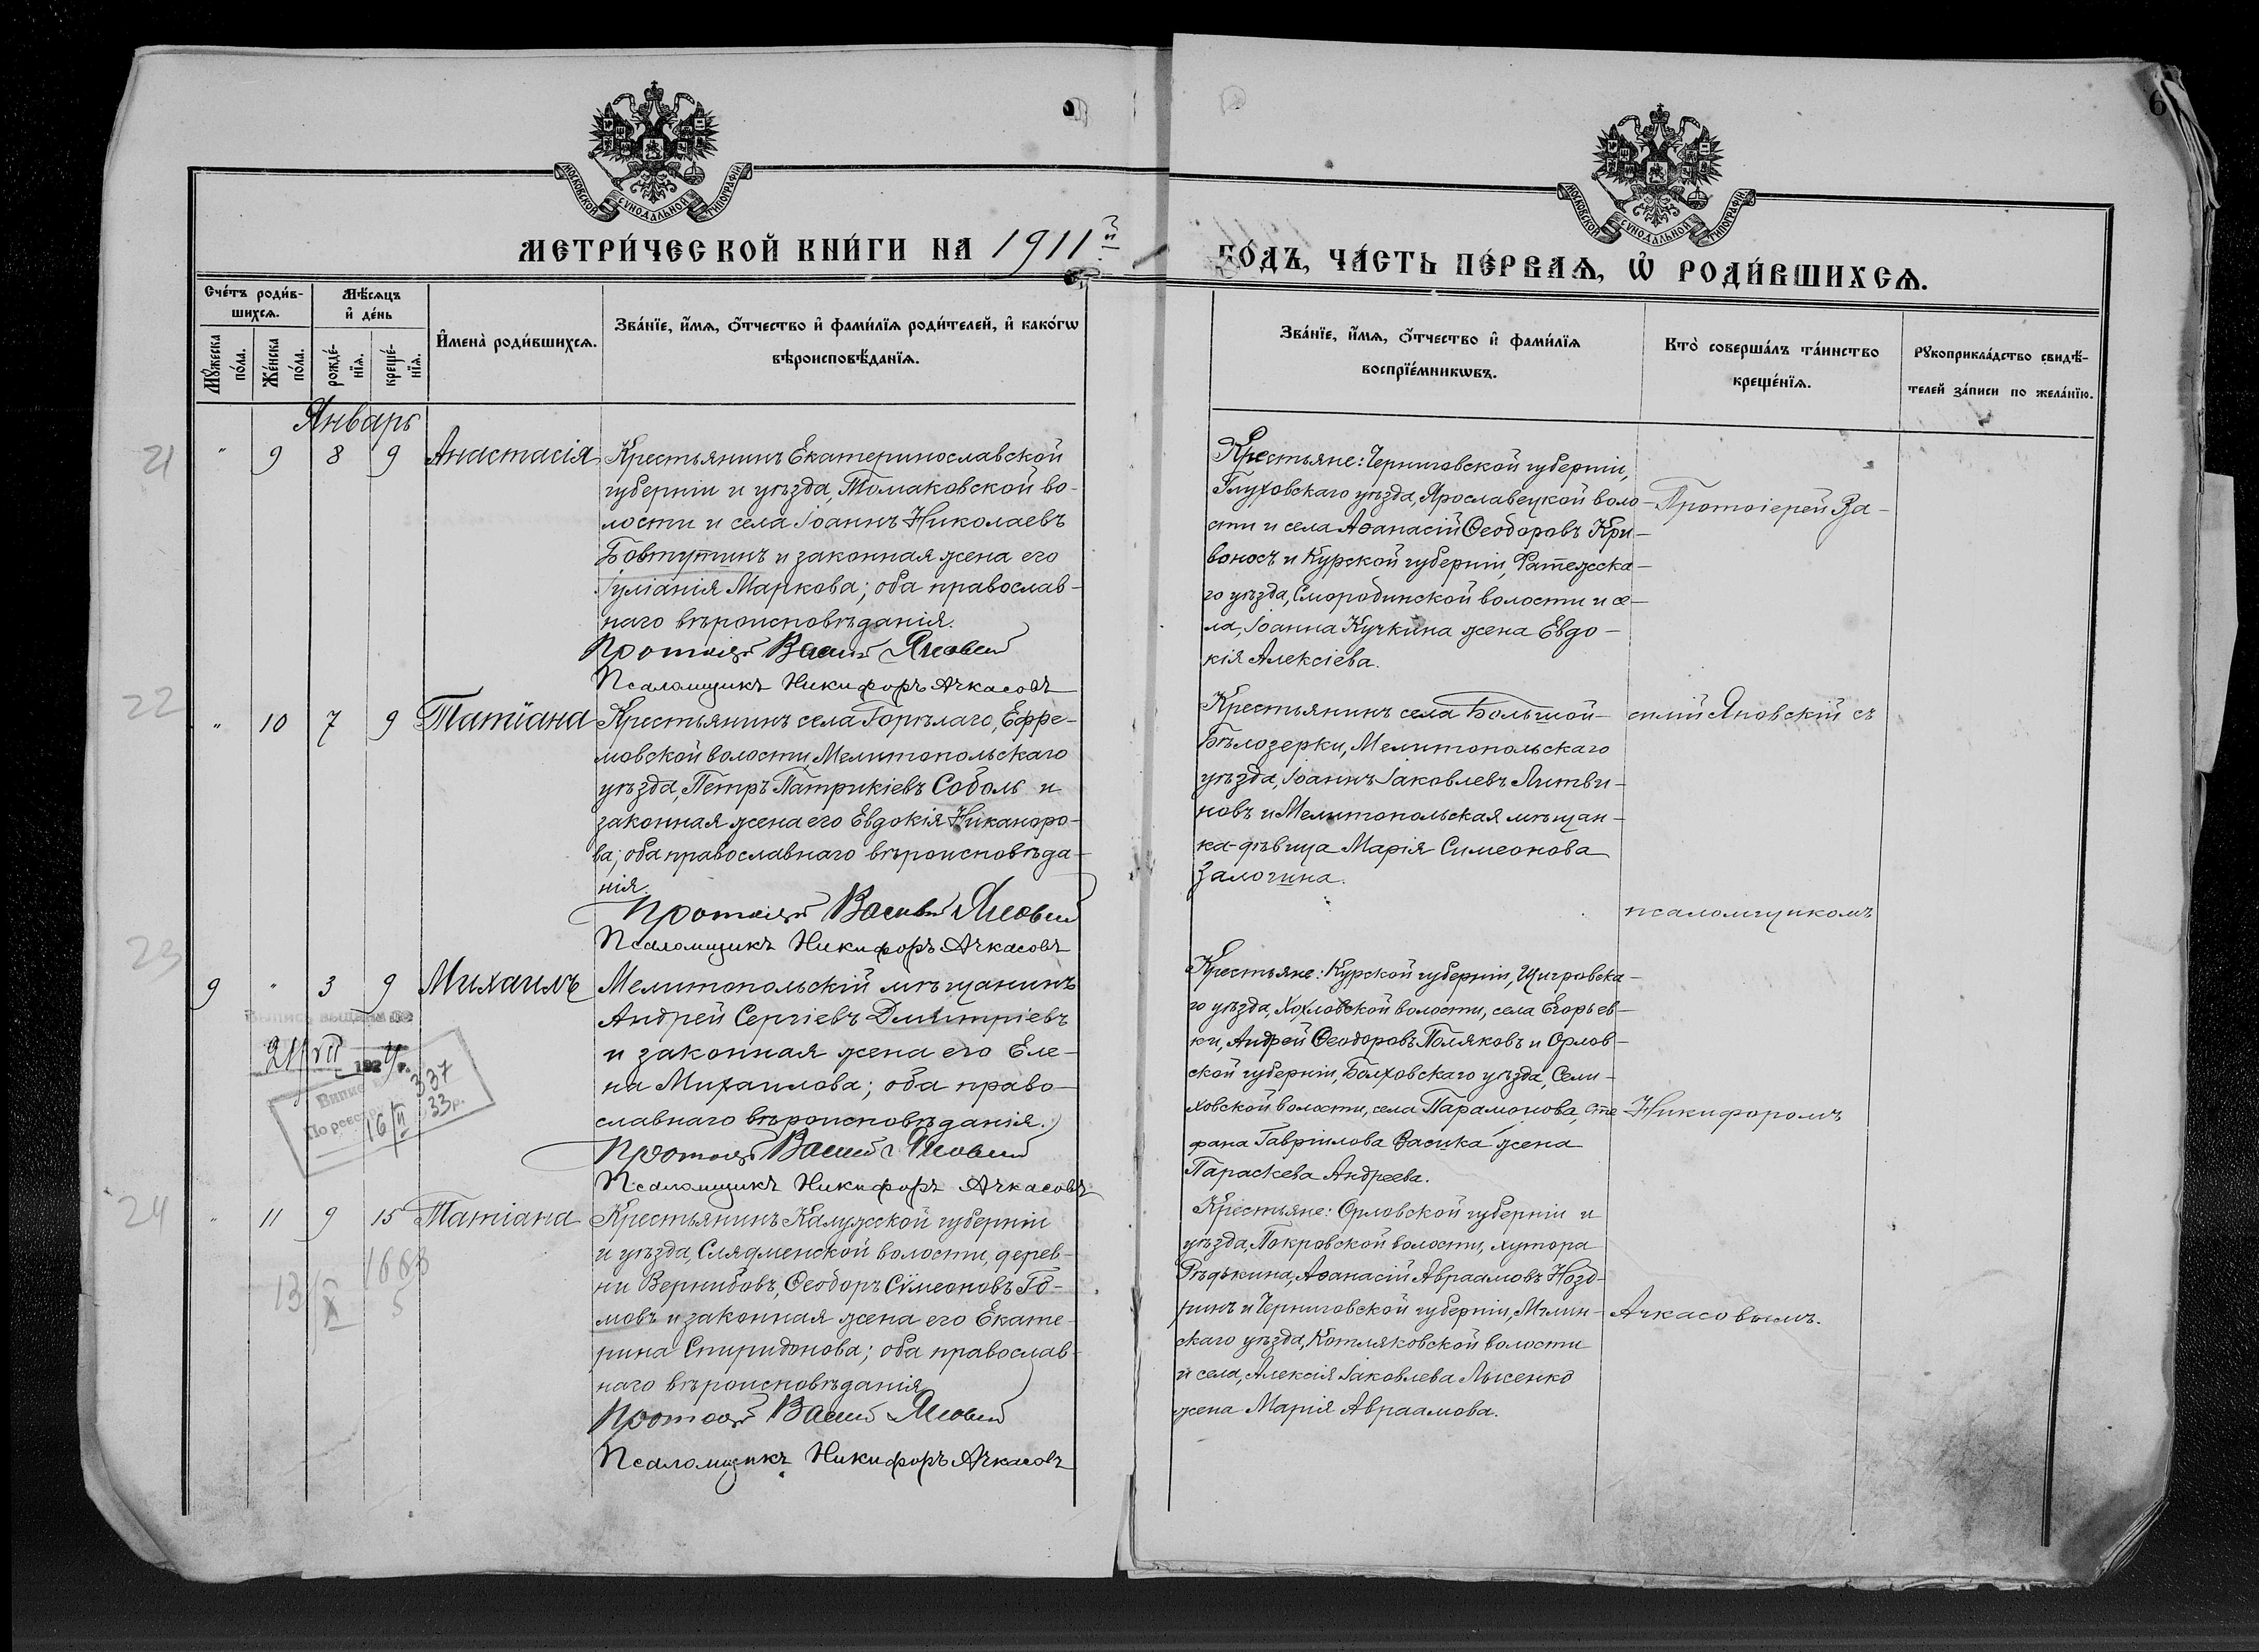 6
МОСКОВСКОЙ СѴНОДАЛЬНОЙ ТИПОГРАФІИ
МОСКОВСКОЙ СѴНОДАЛЬНОЙ ТИПОГРАФІИ
МЕТРИ́ЧЕСКОЙ КНИ́ГИ НА 1911й
ГО́ДЪ, ЧА́СТЬ ПЕ́РВАѦ, Ѽ РОДИ́ВШИХСѦ.
Сче́тъ роди́в-
шихсѧ.
Мꙋ́жеска по́ла.
Же́нска по́ла.
Мѣ́сѧцъ
и҆ де́нь
рожде́-
нїѧ.
креще́-
нїѧ.
И҆мена̀ роди́вшихсѧ.
Зва́нїе, и҆́мѧ, ѻ҆́тчество и҆ фами́лїѧ роди́телей, и҆ како́гѡ
вѣроисповѣ́данїѧ.
Зва́нїе, и҆́мѧ, ѻ҆́тчество и҆ фами́лїѧ
воспрїе́мникѡвъ.
Кто̀ соверша́лъ та́инство
креще́нїѧ.
Рꙋкоприкла́дство свидѣ́-
телей за́писи по жела́нїю.
Январь
21
" 9 8 9 Анастасія
Крестьянинъ Екатеринославской
губерніи и уѣзда, Томаковской во-
лости и села Іоаннъ Николаевъ
Бовтутинъ и законная жена его
Іуліанія Маркова; оба православ-
наго вѣроисповѣданія.
Псаломщикъ Никифоръ Ачкасовъ
Крестьяне: Черниговской губерніи,
Глуховскаго уѣзда, Ярославецкой воло-
сти и села Аѳанасій Ѳеодоровъ Кри-
воносъ и Курской губерніи, Фатежска-
го уѣзда, Смородинской волости и се-
ла, Іоанна Кучкина жена Евдо-
кія Алексіева.
Протоіерей Ва-
22
" 10 7 9 Татіана
Крестьянинъ села Горѣлаго, Ефре-
мовской волости, Мелитопольскаго
уѣзда, Петръ Патрикіевъ Соболь и
законная жена его Евдокія Никаноро-
ва; оба православнаго вѣроисповѣда-
нія.
Псаломщикъ Никифоръ Ачкасовъ
Крестьянинъ села Большой-
Бѣлозерки, Мелитопольскаго
уѣзда, Іоаннъ Іаковлевъ Литви-
новъ и Мелитопольская мѣщан-
ка-дѣвица Марія Симеонова
Залогина.
силій Яновскій съ
псаломщикомъ
23
9 " 3 9 Михаилъ
Мелитопольскій мѣщанинъ
Андрей Сергіевъ Димитріевъ
и законная жена его Еле-
на Михаилова; оба право-
славнаго вѣроисповѣданія.
Псаломщикъ Никифоръ Ачкасовъ
Выпись выдана
21/VII 1924 г.
По реестр. 337
16/II 33 р.
Крестьяне: Курской губерніи, Щигровска-
го уѣзда, Хохловской волости, села Егорьев-
ки, Андрей Ѳеодоровъ Поляковъ и Орлов-
ской губерніи, Болховскаго уѣзда, Сели-
ховской волости, села Парамонова, Сте-
фана Гавріилова Васика жена
Параскева Андреева.
Никифоромъ
24
" 11 9 15 Татіана
1668
13/X 5
Крестьянинъ Калужской губерніи
и уѣзда, Слядменской волости, дерев-
ни Вернибовъ, Ѳеодоръ Сѵмеоновъ Го-
мовъ и законная жена его Екате-
рина Спиридонова; оба православ-
наго вѣроисповѣданія
Псаломщикъ Никифоръ Ачкасовъ
Крестьяне: Орловской губерніи и
уѣзда, Покровской волости, хутора
Рѣдькина, Аѳанасій Авраамовъ Позд-
ринъ и Черниговской губерніи, Мглин-
скаго уѣзда, Котляковской волости
и села, Алексія Іаковлева Лысенко
жена Марія Авраамова.
Ачкасовымъ.